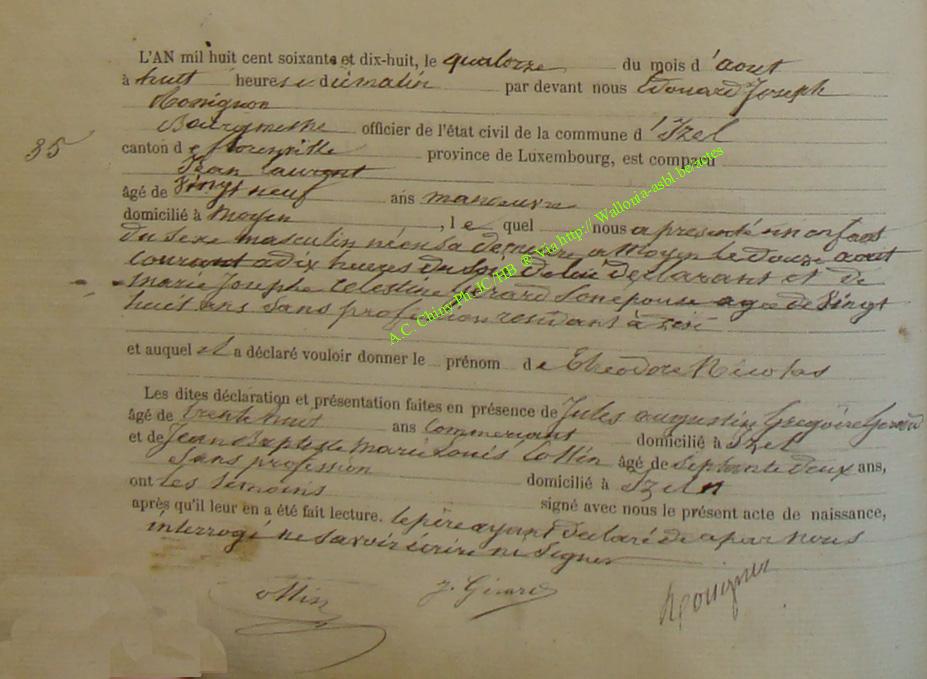 L'AN mil huit cent soixante et dix-huit, le quatorze du mois d'aout
à huit heures du matin par devant nous Edouard Joseph
Rossignon
Bourgmestre officier de l'état civil de la commune d'Izel
35
canton de florenville province de Luxembourg, est comparu
Jean Laurent
âgé de Vingt neuf ans manoeuvre
domicilié à moyen, le quel nous a présenté un enfant
du sexe masculin né en sa demeure a Moyen le douze aout
courant a dix heures du Soir de lui déclarant et de
marie Josephe Celestine Gérard Son épouse agée de Vingt
huit ans Sans profession residant à
et auquel il a déclaré vouloir donner le prénom de Théodore Nicolas
Les dites déclaration et présentation faites en présence de Jules augustin Grégoire Gérard
âgé de trente huit ans Commercant domicilié à Izel
et de Jean Baptiste Marie Louis Collin âgé de Septante deux ans,
Sans profession domicilié à Izel
ont les témoins signé avec nous le présent acte de naissance,
après qu'il leur en a été fait lecture. le père ayant déclaré de a par nous
interrogé ne savoir écrire ne signer
J. Girard
A.C. Chiny Ph.JC/HB ® via http:// Wallonia-asbl.be/actes